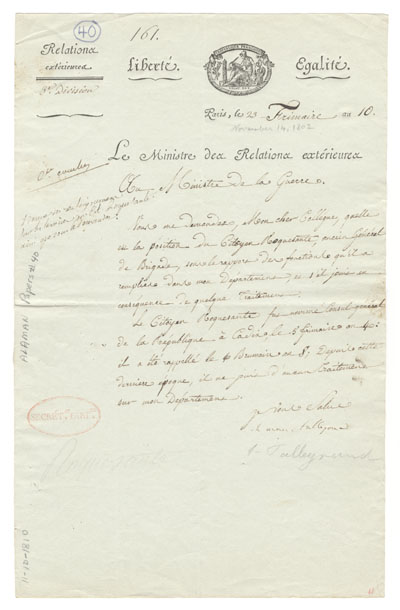 40
161.
Relations
extérieures
Liberté. Egalité.
Division
Paris, le 23 Frimaire an 10.
November 14, 1802
Le Ministre des Relations extérieures
Au Ministre de la Guerre.
Vous me demandez, Mon cher Collègue, quelle
est la position du Citoyen Roquesante, ancien Général
de Brigade, sous le rapport des fonctions qu'il a
remplies dans mon Département, et s'il jouit en
conséquence de quelque Traitement.
Le Citoyen Roquesante fut nommé Consul général
de la République à Cadix, le
il a été rappellé le Brumaire an 8. Depuis cette
dernière époque, il ne jouit d'aucun Traitement
sur mon Département.
Je vous salue
Talleyrand
SECRET. GAL.
11-12-1810